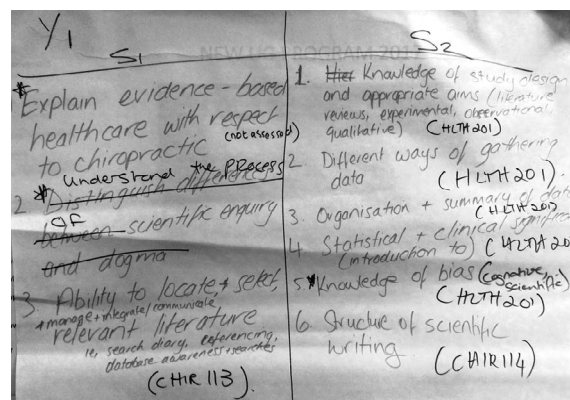 Y1
S1
*Explain evidence-based
healthcare with respect
(not assessed)
to chiropractic
Understand the PROCESS
2. *Distinguish differences
OF
between scientific enquiry
and dogma
3. Ability to locate + select,
+ manage + integrate / communicate
relevant literature
ie, search diary, referencing,
database awareness + searches
(CHIR 113).
NEW UG PROGRAM 201
S2
1. Hier Knowledge of study design
and appropriate aims (literature
reviews, experimental, observational,
qualitative) (HLTH 201)
2. Different ways of gathering
data (HLTH 201).
3. Organisation + summary of data
(HLTH 201)
4. Statistical + clinical
(introduction to) (HLTH 20
5 *Knowledge of bias (cognative,
scientific)
(HLTH 201)
6. Structure of scientific
writing (CHIR 114)